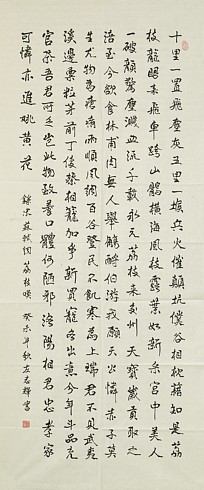 十里一置飛塵灰五里一堠兵火催顛坑僕谷相枕藉知是荔
枝龍眼來飛車跨山鶻橫海風枝露葉如新采宮中美人
一破顏驚塵濺血流千載永元荔枝來交州天寶歲貢取之
涪至今欲食林甫肉無人舉觴酹伯游我願天公憐赤子莫
生尤物為瘡痏雨順風調百谷登民不飢寒為上瑞君不見武夷
溪邊粟粒芽前丁後蔡相籠加爭新買寵各出意今年斗品充
官茶吾君所乏豈此物致養口體何陋邪洛陽相君忠孝家
可憐亦進姚黃花 錄宋蘇軾詞荔枝嘆 癸未年秋左志輝書